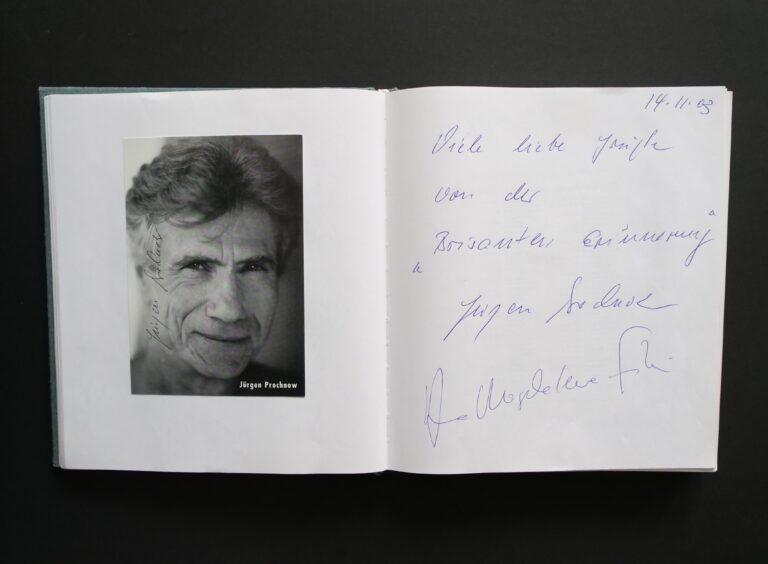 Jürgen Prochnow
Jürgen Prochnow
14.11.03
Viele liebe Grüße
von der
"Brisanten Erinnerung"
Jürgen Prochnow
Magdalena